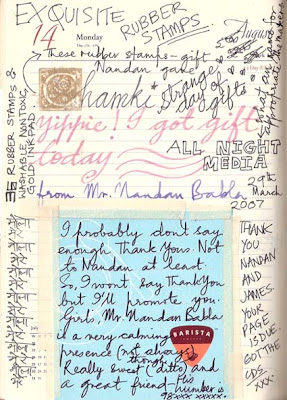 EXQUISITE
RUBBER
STAMPS
14
Monday
August
These rubber stamps - gift
Nandan gave
strange
day of
gifts
35 RUBBER STAMPS &
WASHABLE, NONTOXIC
GOLD INKPAD
yippie! I got gift
today
ALL NIGHT
MEDIA
from Mr. Nandan Babla
29th
March
2007
I probably don't say
enough Thank Yous. Not
to Nandan at least.
So, I wont say Thank You
but I'll promote you.
Girls, Mr Nandan Babla
is a very calming
presence (not always
though)
Really sweet (ditto) and
a great friend - His
number is
98xxx xxxxx.
BARISTA
THANK
YOU
NANDAN
AND
JAMES.
YOUR
PAGE
IS DUE
GOT THE
CDS.
xxx